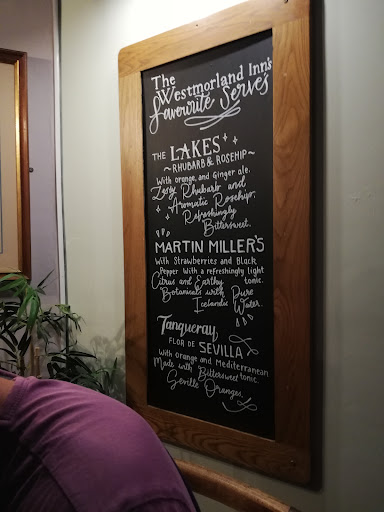 The
Westmorland Inn's
favourite Serves
THE LAKES
~RHUBARB & ROSEHIP~
With orange, and Ginger ale.
Zesty Rhubarb and
Aromatic Rosehip.
Refreshingly
Bittersweet.
MARTIN MILLER'S
With Strawberries and Black
Pepper with a refreshingly light
tonic.
Citrus and Earthy
Botanicals with Pure
Icelandic Water.
Tanqueray
FLOR DE SEVILLA
With orange and Mediterranean
tonic.
Made with Bittersweet
Seville Oranges.